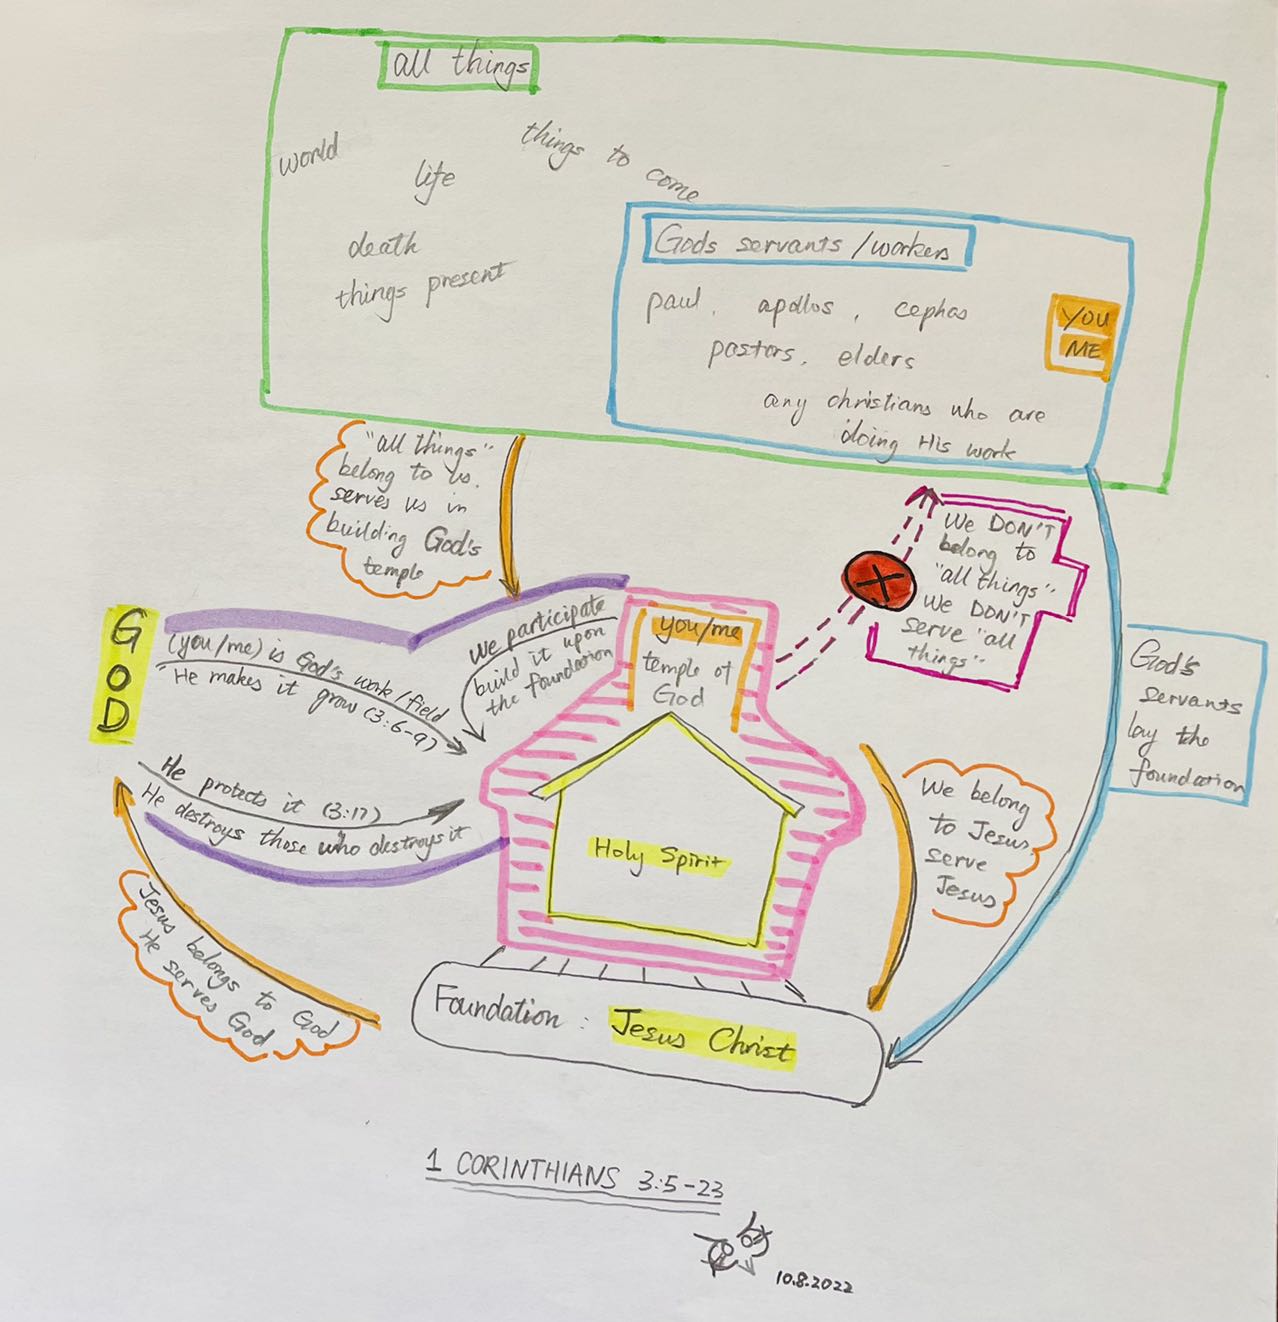 all things
world
things to come
life
death
things present
Gods servants/workers
paul, apollos, cephas
pastors, elders
any christians who are
doing His work
YOU
ME
"all things"
belong to us.
serves us in
building God's
temple
We DON'T
belong to
"all things"
We DON'T
serve "all
things"
GOD
(you/me) is God's work/field
He makes it grow (3:6-9)
we participate
build it upon
the foundation
you/me
temple of
God
God's
servants
lay the
foundation
He protects it (3:17)
He destroys those who destroys it
Holy Spirit
We belong
to Jesus
serve
Jesus
Jesus belongs to God
He serves God
Foundation: Jesus Christ
1 CORINTHIANS 3:5-23
10.8.2022